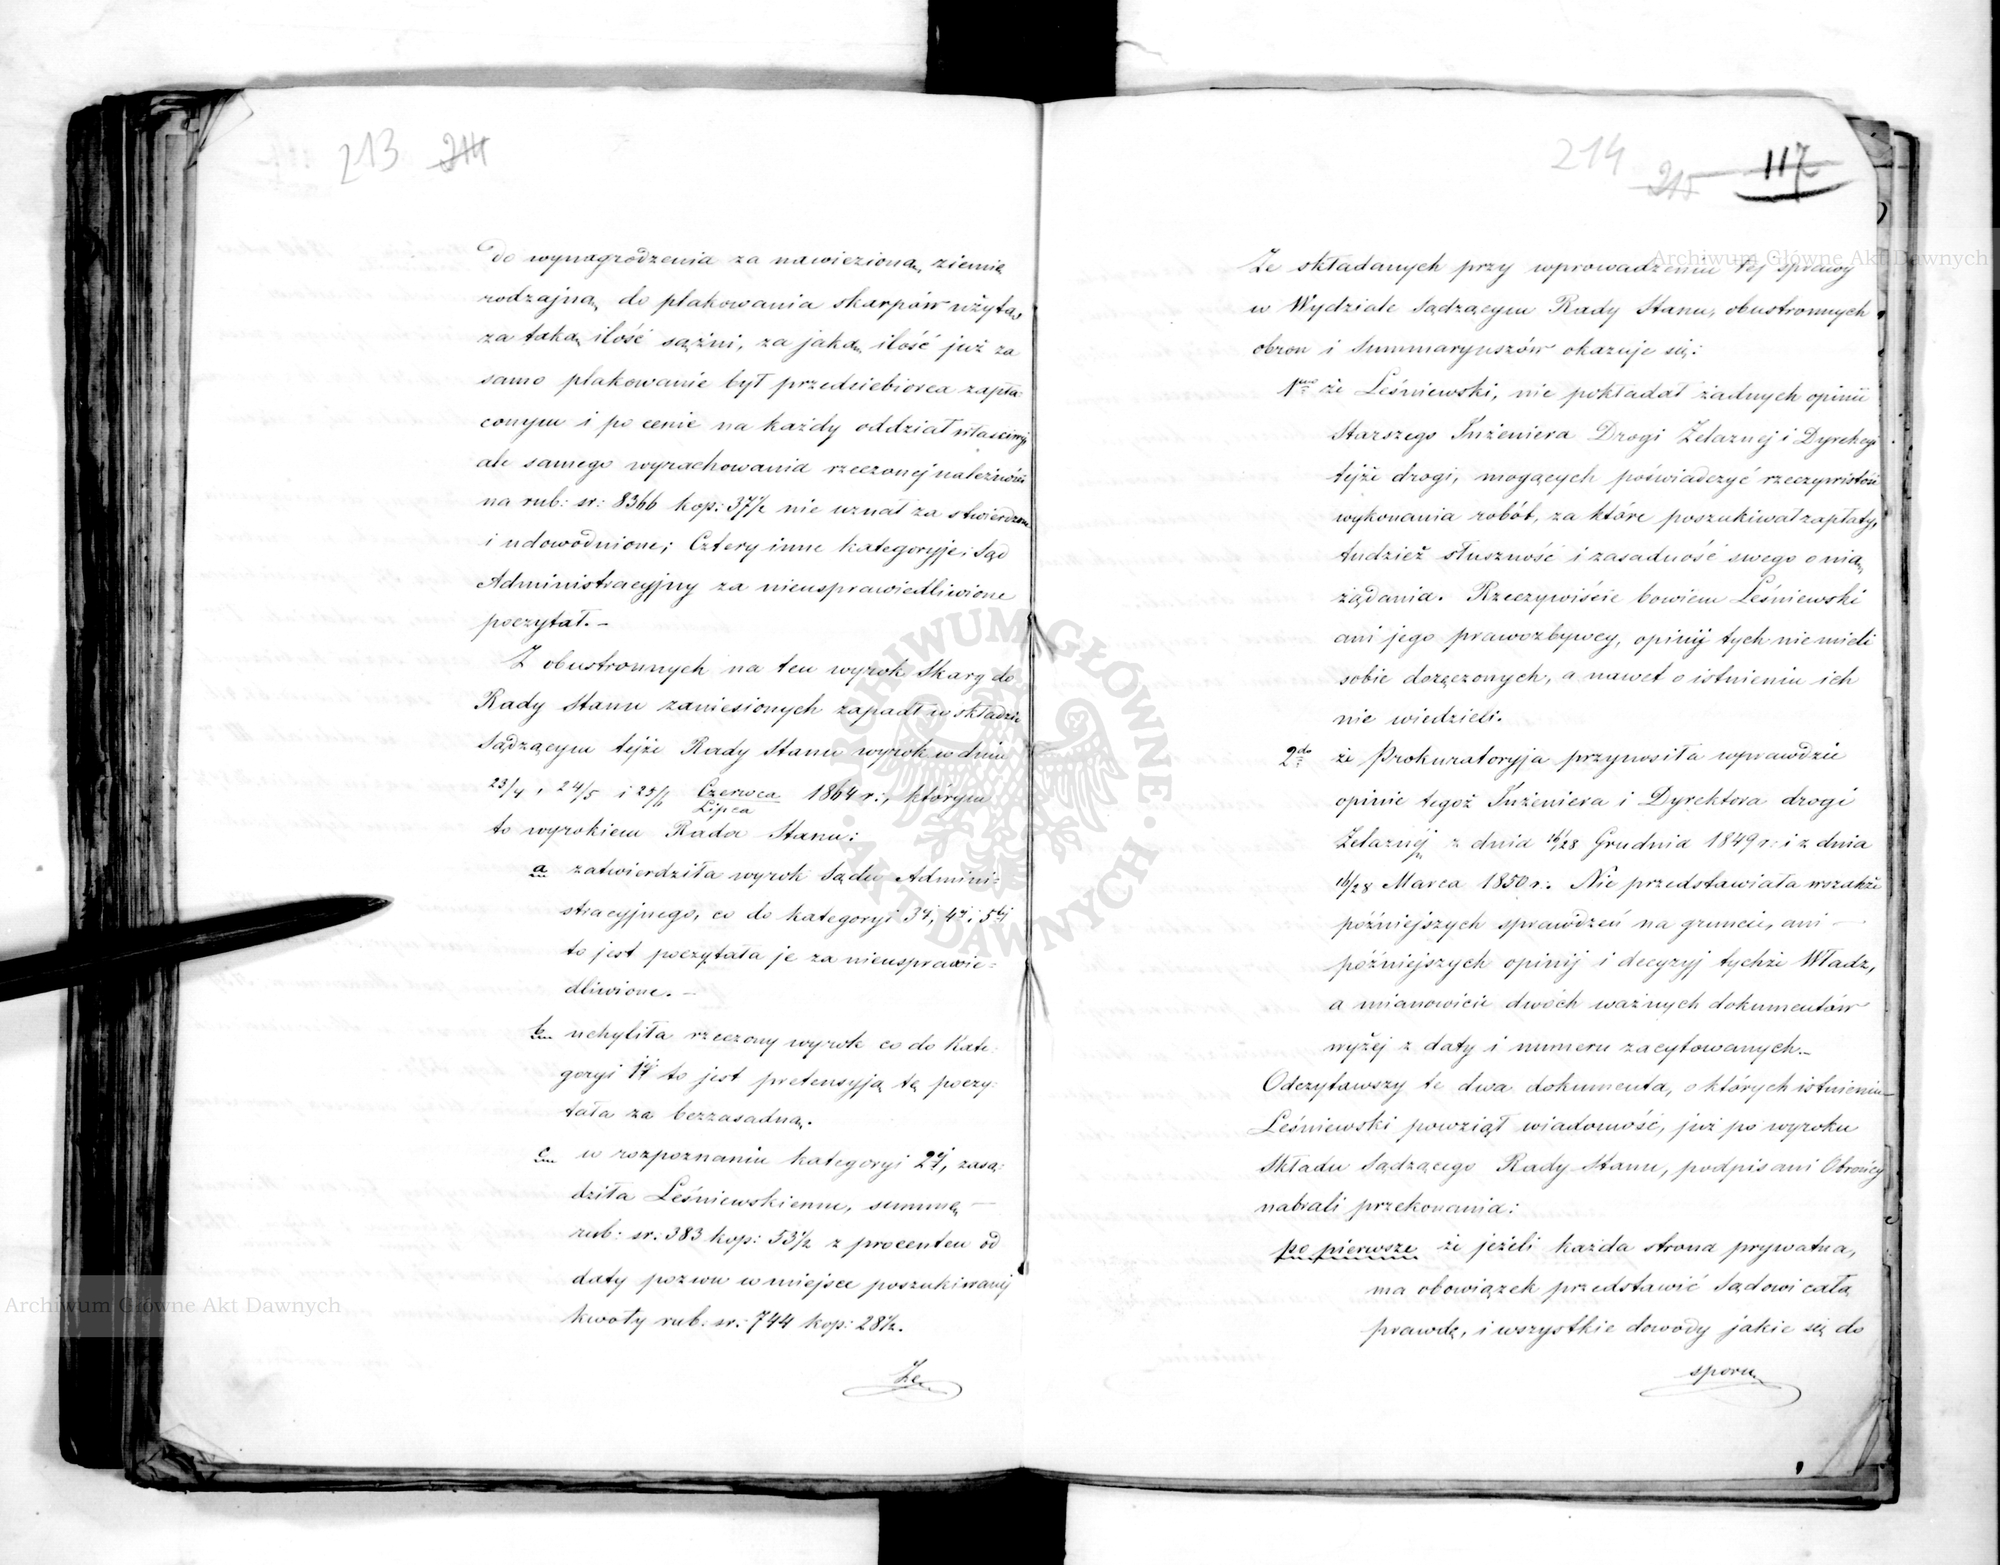 213 214
do wynagrodzenia za nawiezioną ziemię
rodzajną do plakowania skarpów użytą,
za taką ilość sążni, za jaką ilość już za
samo plakowanie był przedsiebiorca zapła-
conym i po cenie na każdy oddział właściwej
ale samego wyrachowania rzeczonej należności
na rub: sr: 8366 kop: 37½ nie uznał za stwierdzone
i udowodnione; Cztery inne kategoryje, Sąd
Administracyjny za nieusprawiedliwione
poczytał. –
Z obustronnych na ten wyrok Skarg do
Rady Stanu zaniesionych zapadł w składzie
Sądzącym tejże Rady Stanu wyrok w dniu
23/4, 24/5 i 25/6 Czerwca/Lipca 1864 r:, którym
to wyrokiem Rada Stanu:
a zatwierdziła wyrok Sądu Admini=
stracyjnego, co do kategoryi 3ej, 4ej i 5tej
to jest poczytała je za nieusprawie=
dliwione. –
b uchyliła rzeczony wyrok co do Kate-
goryi 1ej to jest pretensyją tę poczy-
tała za bezzasadną.
c w rozpoznaniu kategoryi 2ej, zasą-
dziła Leśniewskiemu, summę –
rub: sr: 383 kop: 53½ z procentem od
daty pozwu w miejsce poszukiwanej
kwoty rub: sr: 744 kop: 28½.
Ze
214 215 117
Ze składanych przy wprowadzeniu tej sprawy
w Wydziale Sądzącym Rady Stanu, obustronnych
obron i Summaryuszów okazuje się:
1mo że Leśniewski, nie pokładał żadnych opinii
Starszego Inżeniera Drogi Żelaznej i Dyrekcyi
tejże drogi, mogących poświadczyć rzeczywistość
wykonania robót, za które poszukiwał zapłaty,
tudzież słuszność i zasadność swego o nią
żądania. Rzeczywiście bowiem Leśniewski
ani jego prawozbywcy, opinij tych nie mieli
sobie doręczonych, a nawet o istnieniu ich
nie wiedzieli.
2do że Prokuratoryja przynosiła wprawdzie
opinie tegoż Inżeniera i Dyrektora drogi
Żelaznej z dnia 16/28 Grudnia 1849 r: i z dnia
16/28 Marca 1850 r:. Nie przedstawiała wszakże
późniejszych sprawdzeń na gruncie, ani –
późniejszych opinij i decyzyj tychże Władz,
a mianowicie dwóch ważnych dokumentów
wyżej z daty i numeru zacytowanych. –
Odczytawszy te dwa dokumenta, o których istnieniu
Leśniewski powziął wiadomość, już po wyroku
Składu Sądzącego Rady Stanu, podpisani Obrońcy
nabrali przekonania:
po pierwsze że jeżeli każda strona prywatna,
ma obowiązek przedstawić Sądowi całą
prawdę, i wszystkie dowody jakie się do
sporu
Archiwum Główne Akt Dawnych
Archiwum Główne Akt Dawnych
ARCHIWUM GŁÓWNE · AKT DAWNYCH ·